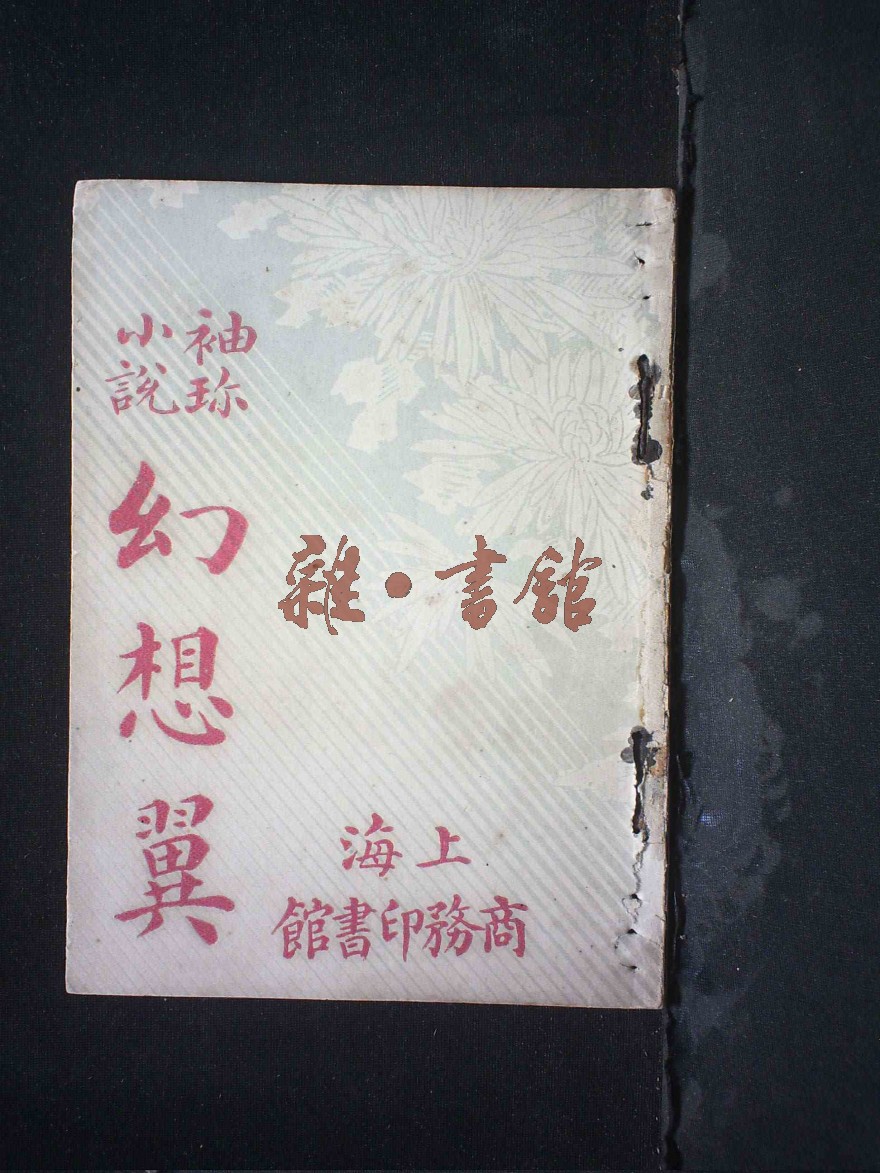 袖珍
小說
幻想翼
雜·書館
上海
商務印書館